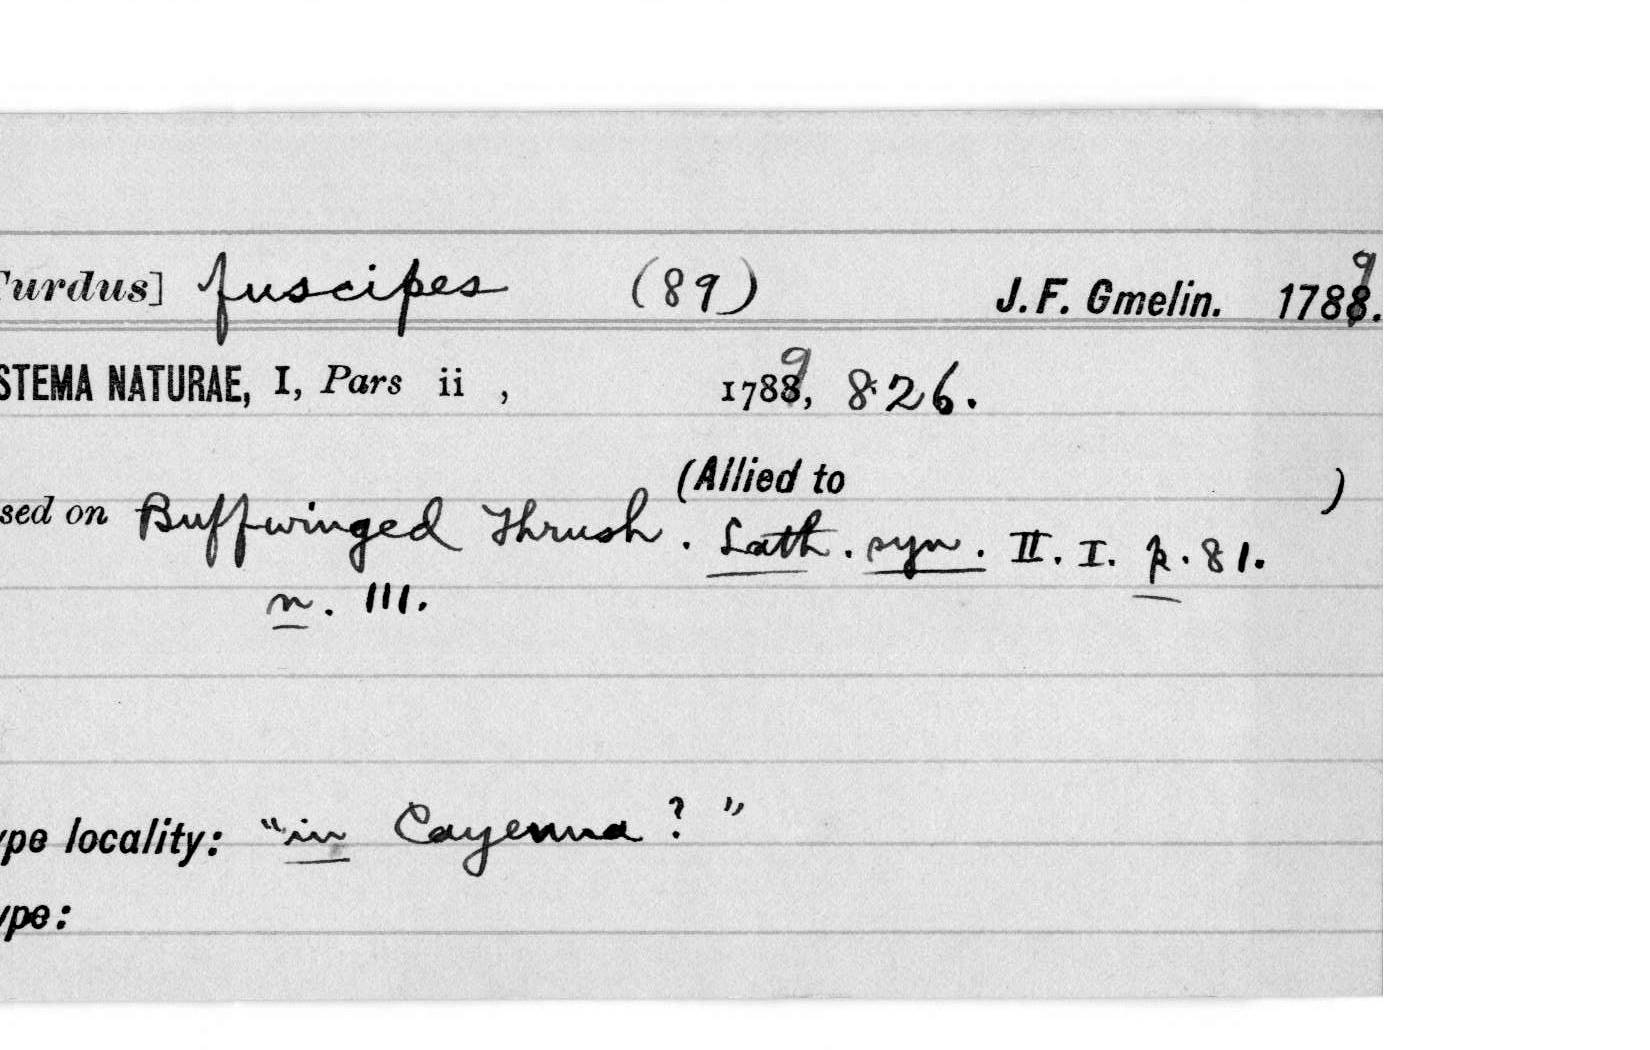 Turdus] fuscipes (89) J. F. Gmelin. 1789.
STEMA NATURAE, I, Pars ii , 1789, 826.
(Allied to )
sed on Buffwinged Thrush. Lath. syn. II. I. p. 81.
n. 111.
ype locality: "in Cayenna ? "
ype: